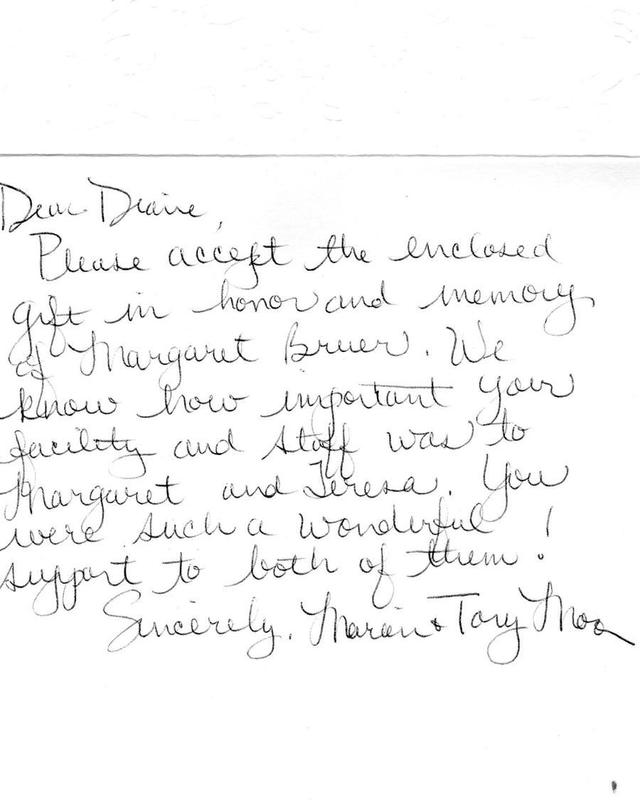 Dear Diane,
Please accept the enclosed
gift in honor and memory
of Margaret Bruer. We
know how important your
facility and staff was to
Margaret and Teresa. You
were such a wonderful
support to both of them!
Sincerely, Marian + Tony